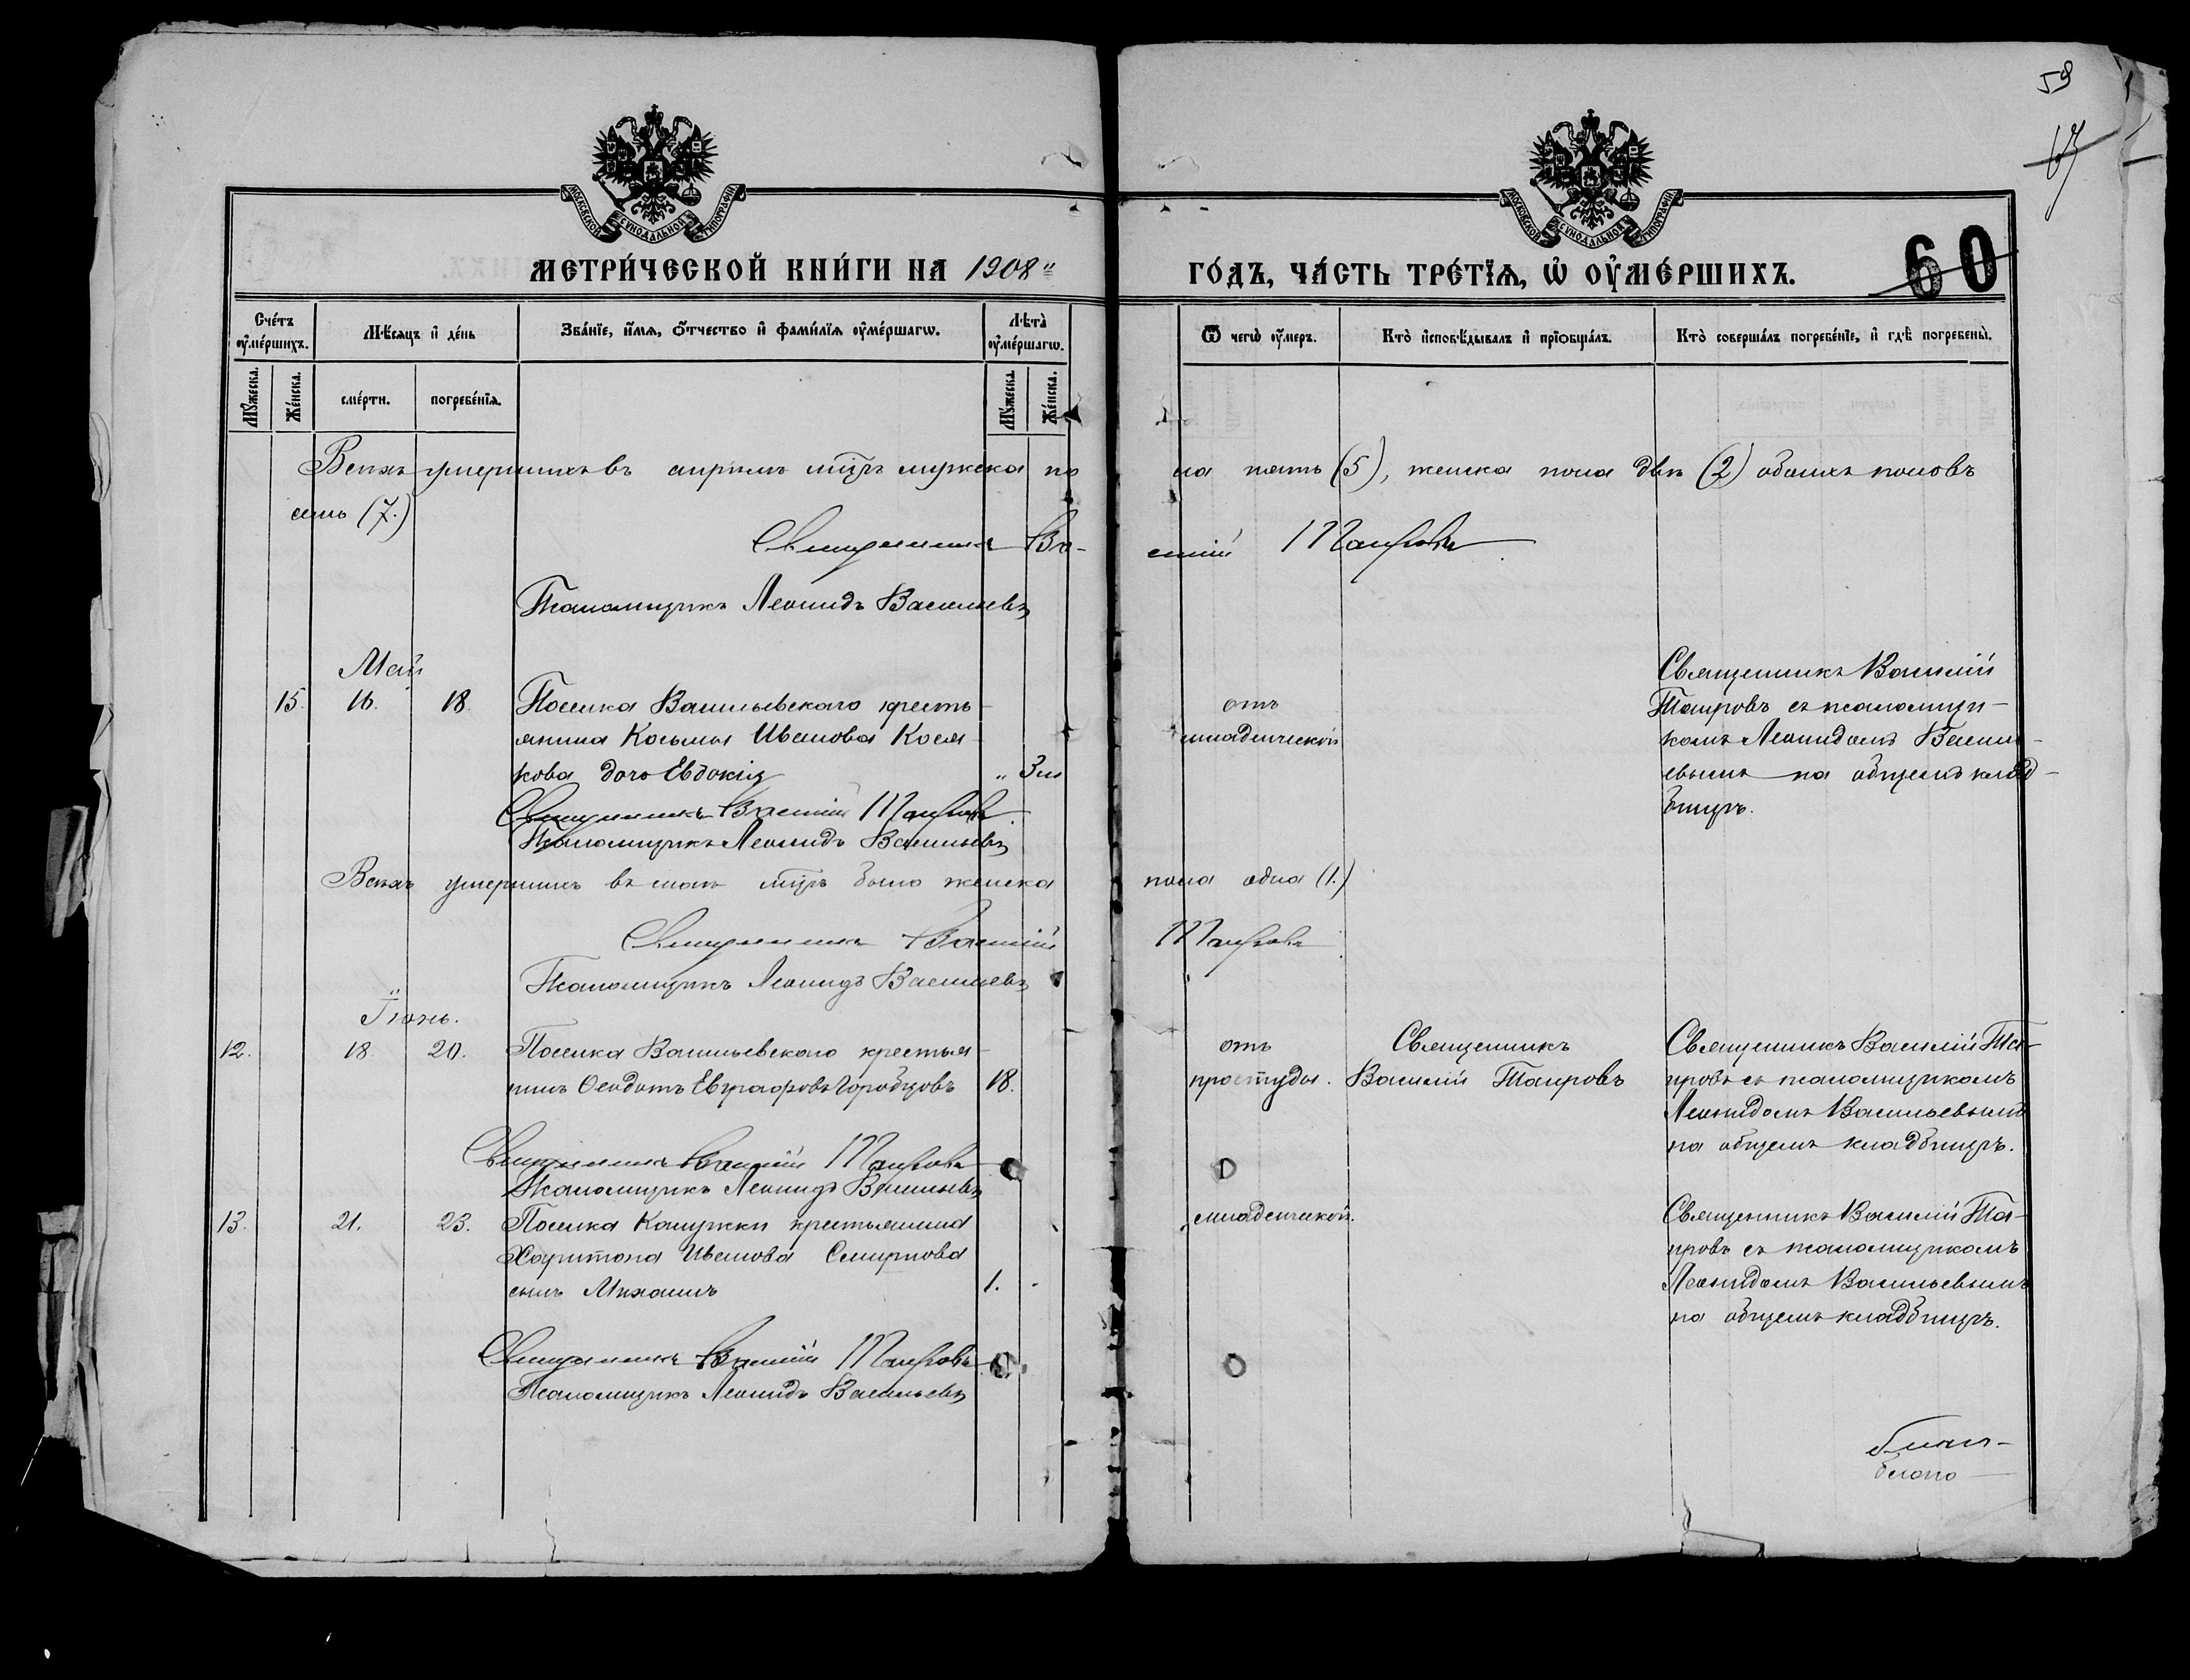 59
МОСКОВСКОЙ СѴНОДАЛЬНОЙ ТИПОГРАФІИ
МОСКОВСКОЙ СѴНОДАЛЬНОЙ ТИПОГРАФІИ
60
МЕТРИ́ЧЕСКОЙ КНИ́ГИ НА 1908
ГО́ДЪ, ЧА́СТЬ ТРЕ́ТЇѦ, Ѡ҆ ОУ҆МЕ́РШИХЪ.
Сче́тъ оу҆ме́ршихъ.
Мѣ́сяцъ и҆ де́нь
Зва́нїе, и҆́мѧ, ѻ҆́тчество и҆ фами́лїѧ оу҆ме́ршагѡ.
Лѣта̀ оу҆ме́ршагѡ.
Ѿ чегѡ̀ оу҆́меръ.
Кто̀ и҆сповѣ́дывалъ и҆ прїѡбща́лъ.
Кто̀ соверша́лъ погребе́нїе, и҆ гдѣ̀ погребены̀.
Мꙋ́жеска.
Же́нска.
сме́рти.
погребе́нїѧ.
Мꙋ́жеска.
Же́нска.
Всѣхъ умершихъ въ апрѣлѣ мцѣ мужска по
ла пять (5), женска пола двѣ (2) обоихъ половъ
семь (7.)
Священникъ Ва-
силій Таировъ
Псаломщикъ Леонидъ Васильевъ
Май
15. 16. 18. Поселка Васильевскаго кресть-
янина Косьмы Иванова Кося-
кова дочь Евдокія " 3 м
отъ
младенческой
Священникъ Василій
Таировъ съ псаломщи-
комъ Леонидомъ Василь-
евымъ на общемъ клад-
бищѣ.
Священникъ Василій Таировъ
Псаломщикъ Леонидъ Васильевъ
Всѣхъ умершихъ въ маѣ мцѣ было женска
пола одна (1.)
Священникъ Василій
Таировъ
Псаломщикъ Леонидъ Васильевъ
Іюнь.
12. 18. 20. Поселка Васильевскаго крестья-
нинъ Ѳеодотъ Евграфовъ Горобцовъ 18.
отъ
простуды.
Священникъ
Василій Таировъ
Священникъ Василій Та-
ировъ съ псаломщикомъ
Леонидомъ Васильевымъ
на общемъ кладбищѣ.
Священникъ Василій Таировъ
Псаломщикъ Леонидъ Васильевъ
13. 21. 23. Поселка Калужки крестьянина
Харитона Иванова Смирнова
сынъ Михаилъ 1.
младенческой.
Священникъ Василій Та-
ировъ съ псаломщикомъ
Леонидомъ Васильевымъ
на общемъ кладбищѣ.
Священникъ Василій Таировъ
Псаломщикъ Леонидъ Васильевъ